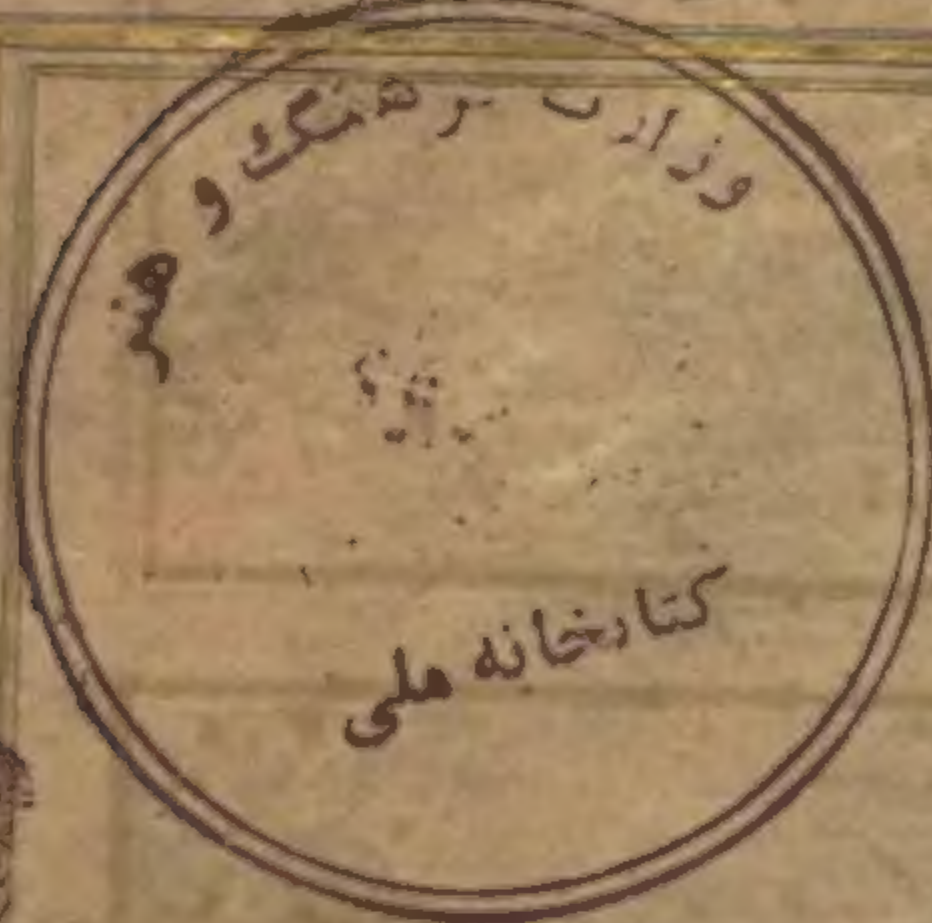 وزارت فرهنگ و هنر
کتابخانه ملی